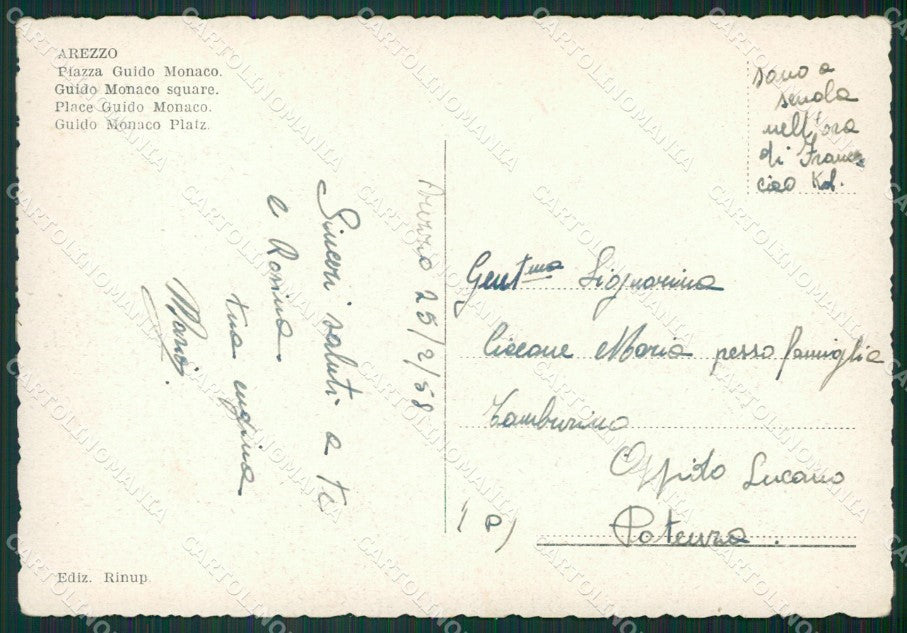 AREZZO
Piazza Guido Monaco.
Guido Monaco square.
Place Guido Monaco.
Guido Monaco Platz.
sono a
scuola
nell'ora
di Franc
ciao
Arezzo 25/2/58
Sinceri saluti a te
e Rosina.
tua cugina
Gent.ma Signorina
Ciccone Maria presso famiglia
Tamburrino
Oppido Lucano
(P)
Potenza.
Ediz. Rinup
CARTOLINOMANIA